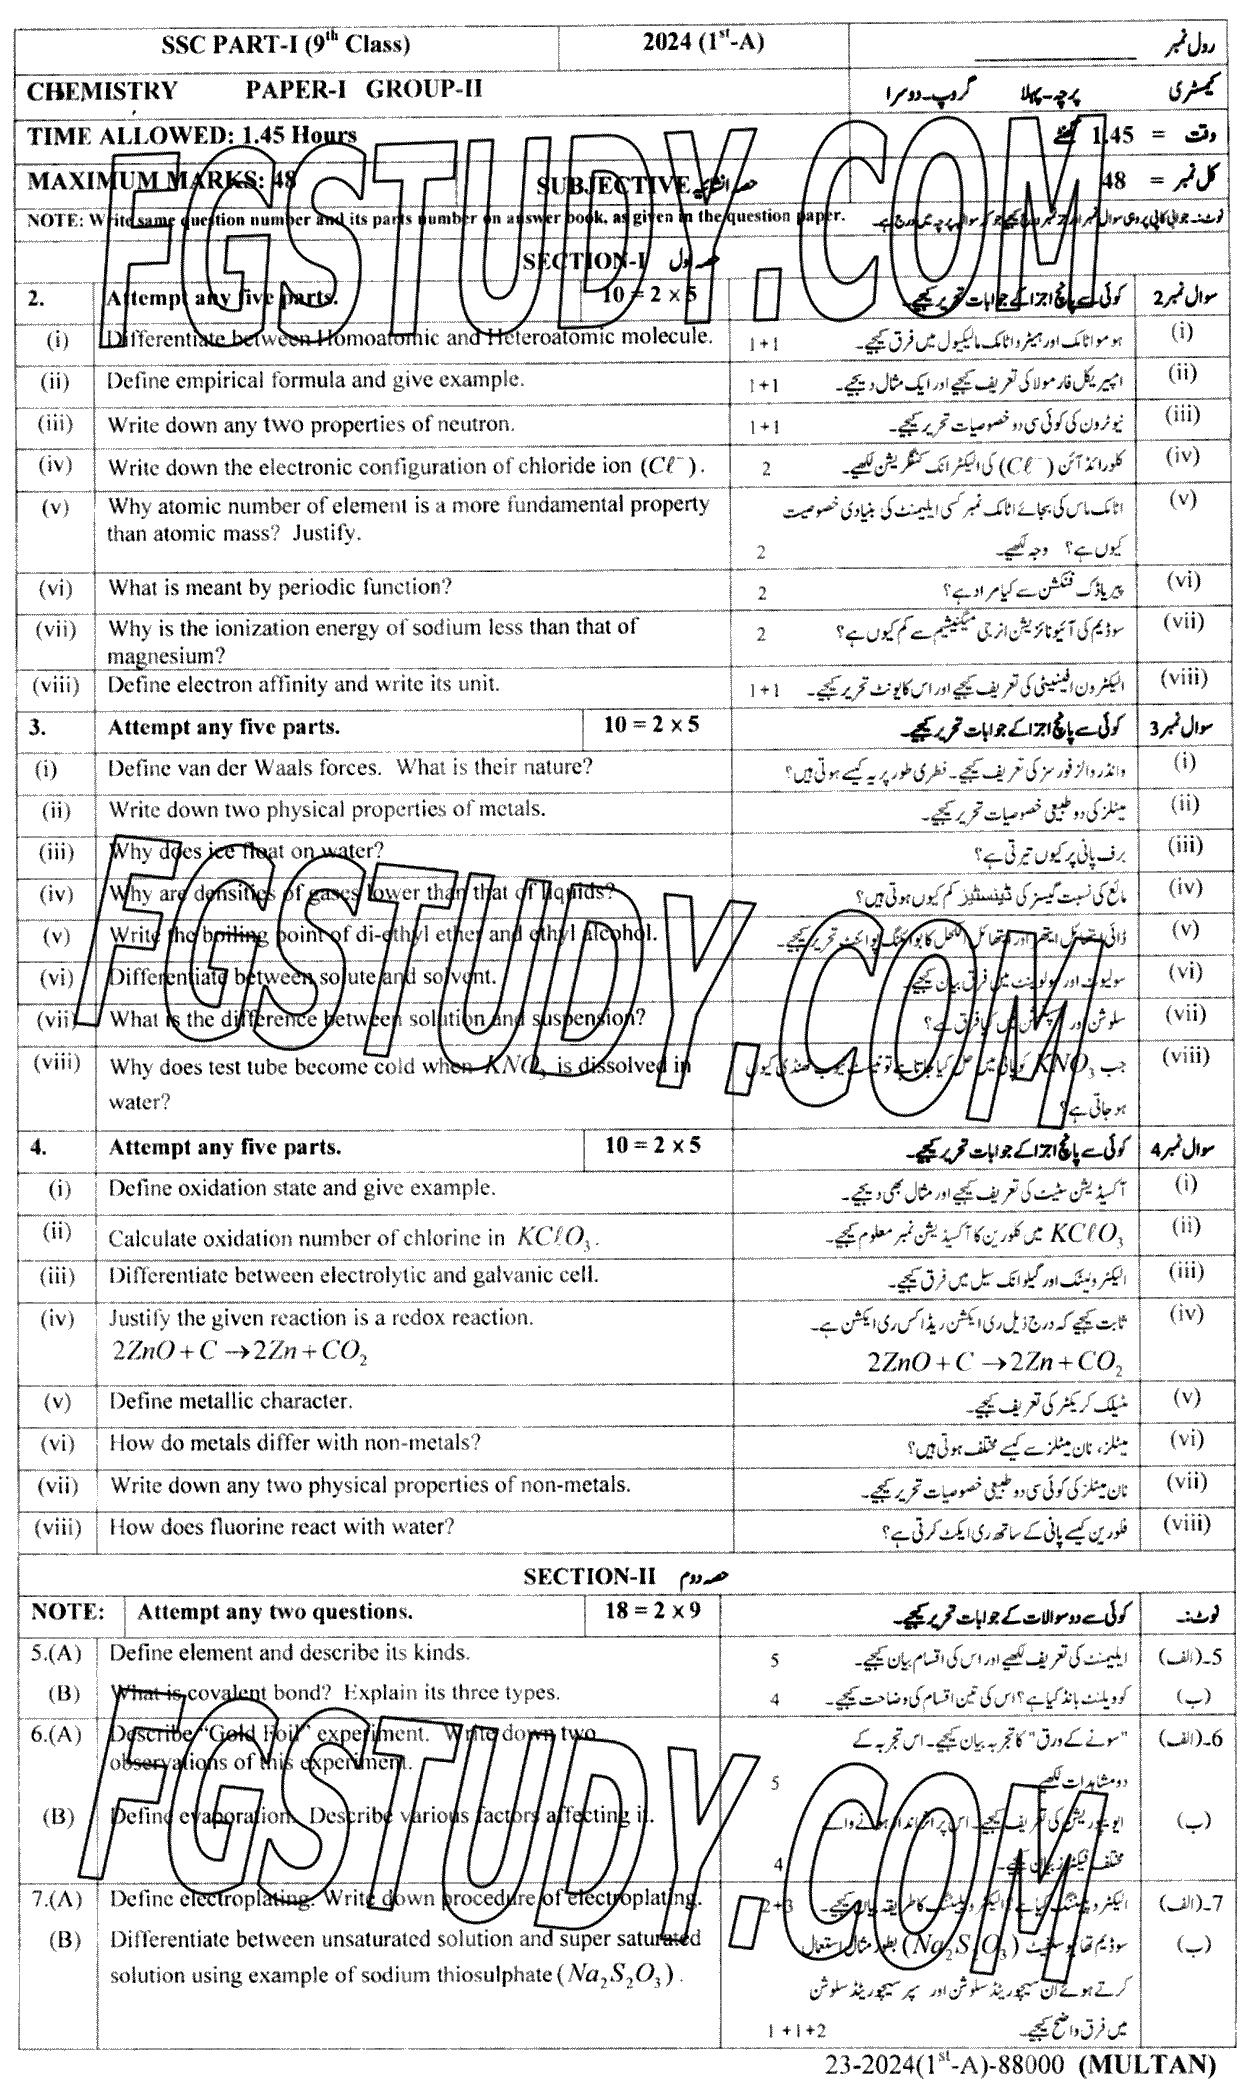 SSC PART-I (9th Class) 2024 (1st-A) رول نمبر
CHEMISTRY PAPER-I GROUP-II کیمسٹری پرچہ۔پہلا گروپ۔دوسرا
TIME ALLOWED: 1.45 Hours وقت = 1.45 گھنٹے
MAXIMUM MARKS: 48 SUBJECTIVE حصہ انشائیہ کل نمبر = 48
NOTE: Write same question number and its parts number on answer book, as given in the question paper. نوٹ:۔ جوابی کاپی پر وہی سوال نمبر اور جز نمبر درج کیجیے جو کہ سوالیہ پرچہ میں درج ہے۔
SECTION-I حصہ اول
2. Attempt any five parts. 10 = 2 × 5 کوئی سے پانچ اجزا کے جوابات تحریر کیجیے۔ سوال نمبر 2
(i) Differentiate between Homoatomic and Heteroatomic molecule. 1+1 ہومواٹامک اور ہیٹرواٹامک مالیکیول میں فرق کیجیے۔ (i)
(ii) Define empirical formula and give example. 1+1 امپیریکل فارمولا کی تعریف کیجیے اور ایک مثال دیجیے۔ (ii)
(iii) Write down any two properties of neutron. 1+1 نیوٹرون کی کوئی سی دو خصوصیات تحریر کیجیے۔ (iii)
(iv) Write down the electronic configuration of chloride ion (Cℓ⁻). 2 کلورائڈ آئن (Cℓ⁻) کی الیکٹرانک کنفگریشن لکھیے۔ (iv)
(v) Why atomic number of element is a more fundamental property اٹامک ماس کی بجائے اٹامک نمبر کسی ایلیمنٹ کی بنیادی خصوصیت (v)
than atomic mass? Justify. 2 کیوں ہے؟ وجہ لکھیے۔
(vi) What is meant by periodic function? 2 پیریاڈک فنکشن سے کیا مراد ہے؟ (vi)
(vii) Why is the ionization energy of sodium less than that of 2 سوڈیم کی آئیونائزیشن انرجی میگنیشیم سے کم کیوں ہے؟ (vii)
magnesium?
(viii) Define electron affinity and write its unit. 1+1 الیکٹرون افینیٹی کی تعریف کیجیے اور اس کا یونٹ تحریر کیجیے۔ (viii)
3. Attempt any five parts. 10 = 2 × 5 کوئی سے پانچ اجزا کے جوابات تحریر کیجیے۔ سوال نمبر 3
(i) Define van der Waals forces. What is their nature? وانڈر والز فورسز کی تعریف کیجیے۔ فطری طور پر یہ کیسے ہوتی ہیں؟ (i)
(ii) Write down two physical properties of metals. میٹلز کی دو طبیعی خصوصیات تحریر کیجیے۔ (ii)
(iii) Why does ice float on water? برف پانی پر کیوں تیرتی ہے؟ (iii)
(iv) Why are densities of gases lower than that of liquids? مائع کی نسبت گیسز کی ڈینسٹیز کم کیوں ہوتی ہیں؟ (iv)
(v) Write the boiling point of di-ethyl ether and ethyl alcohol. ڈائی ایتھائل ایتھر اور ایتھائل الکحل کا بوائلنگ پوائنٹ تحریر کیجیے۔ (v)
(vi) Differentiate between solute and solvent. سولیوٹ اور سولوینٹ میں فرق بیان کیجیے۔ (vi)
(vii) What is the difference between solution and suspension? سلوشن اور سسپنشن میں کیا فرق ہے؟ (vii)
(viii) Why does test tube become cold when KNO₃ is dissolved in جب KNO₃ کو پانی میں حل کیا جاتا ہے تو ٹیسٹ ٹیوب ٹھنڈی کیوں (viii)
water? ہو جاتی ہے؟
4. Attempt any five parts. 10 = 2 × 5 کوئی سے پانچ اجزا کے جوابات تحریر کیجیے۔ سوال نمبر 4
(i) Define oxidation state and give example. آکسیڈیشن سٹیٹ کی تعریف کیجیے اور مثال بھی دیجیے۔ (i)
(ii) Calculate oxidation number of chlorine in KCℓO₃. KCℓO₃ میں کلورین کا آکسیڈیشن نمبر معلوم کیجیے۔ (ii)
(iii) Differentiate between electrolytic and galvanic cell. الیکٹرولیٹک اور گیلوانک سیل میں فرق کیجیے۔ (iii)
(iv) Justify the given reaction is a redox reaction. ثابت کیجیے کہ درج ذیل ری ایکشن ریڈاکس ری ایکشن ہے۔ (iv)
2ZnO + C → 2Zn + CO₂ 2ZnO + C → 2Zn + CO₂
(v) Define metallic character. میٹیلک کریکٹر کی تعریف کیجیے۔ (v)
(vi) How do metals differ with non-metals? میٹلز، نان میٹلز سے کیسے مختلف ہوتی ہیں؟ (vi)
(vii) Write down any two physical properties of non-metals. نان میٹلز کی کوئی سی دو طبیعی خصوصیات تحریر کیجیے۔ (vii)
(viii) How does fluorine react with water? فلورین کیسے پانی کے ساتھ ری ایکٹ کرتی ہے؟ (viii)
SECTION-II حصہ دوم
NOTE: Attempt any two questions. 18 = 2 × 9 کوئی سے دو سوالات کے جوابات تحریر کیجیے۔ نوٹ:۔
5.(A) Define element and describe its kinds. 5 ایلیمنٹ کی تعریف لکھیے اور اس کی اقسام بیان کیجیے۔ 5۔(الف)
(B) What is covalent bond? Explain its three types. 4 کوویلنٹ بانڈ کیا ہے؟ اس کی تین اقسام کی وضاحت کیجیے۔ (ب)
6.(A) Describe "Gold Foil" experiment. Write down two "سونے کے ورق" کا تجربہ بیان کیجیے۔ اس تجربہ کے 6۔(الف)
observations of this experiment. 5 دو مشاہدات لکھیے۔
(B) Define evaporation. Describe various factors affecting it. ایویپوریشن کی تعریف کیجیے۔ اس پر اثرانداز ہونے والے (ب)
4 مختلف فیکٹرز بیان کیجیے۔
7.(A) Define electroplating. Write down procedure of electroplating. 2+3 الیکٹروپلیٹنگ کیا ہے؟ الیکٹروپلیٹنگ کا طریقہ بیان کیجیے۔ 7۔(الف)
(B) Differentiate between unsaturated solution and super saturated سوڈیم تھایوسلفیٹ (Na₂S₂O₃) بطور مثال استعمال (ب)
solution using example of sodium thiosulphate (Na₂S₂O₃). کرتے ہوئے ان سیچوریٹڈ سلوشن اور سپر سیچوریٹڈ سلوشن
1+1+2 میں فرق واضح کیجیے۔
23-2024(1st-A)-88000 (MULTAN)
FGSTUDY.COM
FGSTUDY.COM
FGSTUDY.COM